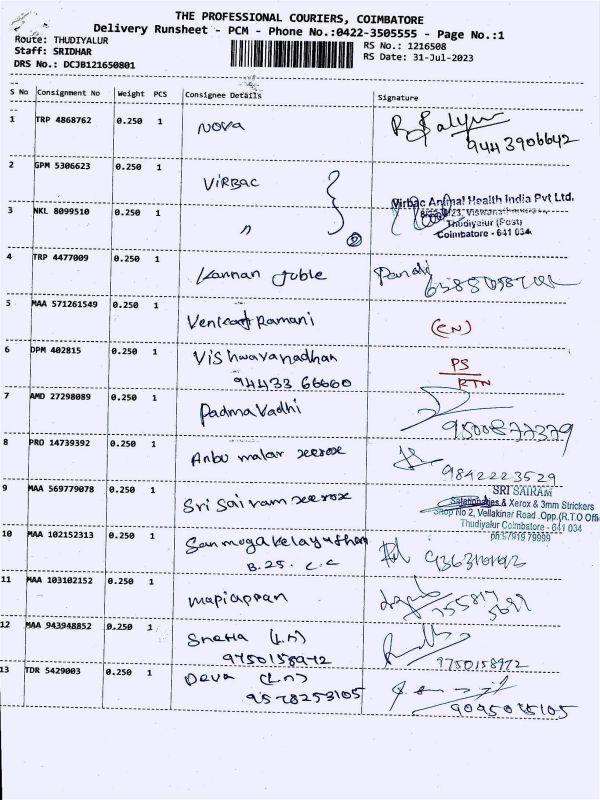 THE PROFESSIONAL COURIERS, COIMBATORE
Delivery Runsheet - PCM - Phone No.:0422-3505555 - Page No.:1
Route: THUDIYALUR
RS No.: 1216508
Staff: SRIDHAR
RS Date: 31-Jul-2023
DRS No.: DCJB121650801
S No Consignment No Weight PCS Consignee Details Signature
1 TRP 4868762 0.250 1 NOVA
9443906642
2 GPM 5306623 0.250 1 VIRBAC
Virbac Animal Health India Pvt Ltd.
3 NKL 8099510 0.250 1 〃
Thudiyalur (Post)
Coimbatore - 641 034
2
4 TRP 4477009 0.250 1 Kannan Juble Pandi
5 MAA 571261549 0.250 1 Venkat Ramani (CN)
6 DPM 402815 0.250 1 Vishwavanadhan PS
94433 66660 RTN
7 AMD 27298089 0.250 1 Padma Vadhi
9500877379
8 PRO 14739392 0.250 1 Anbu malar xerox
9842223529
9 MAA 569779078 0.250 1 Sri Sairam xerox
SRI SAIRAM
Stationaries & Xerox & 3mm Strickers
Shop No 2, Vellakinar Road .Opp.(R.T.O Offi
Thudiyalur Coimbatore - 641 034
10 MAA 102152313 0.250 1 Sanmogavelayuthan
B.25. C.C
11 MAA 103102152 0.250 1 Mapiappan
12 MAA 943948852 0.250 1 Sneha (L.n)
9750158972 9750158972
13 TDR 5429003 0.250 1 Deva (L.n)
9578253105